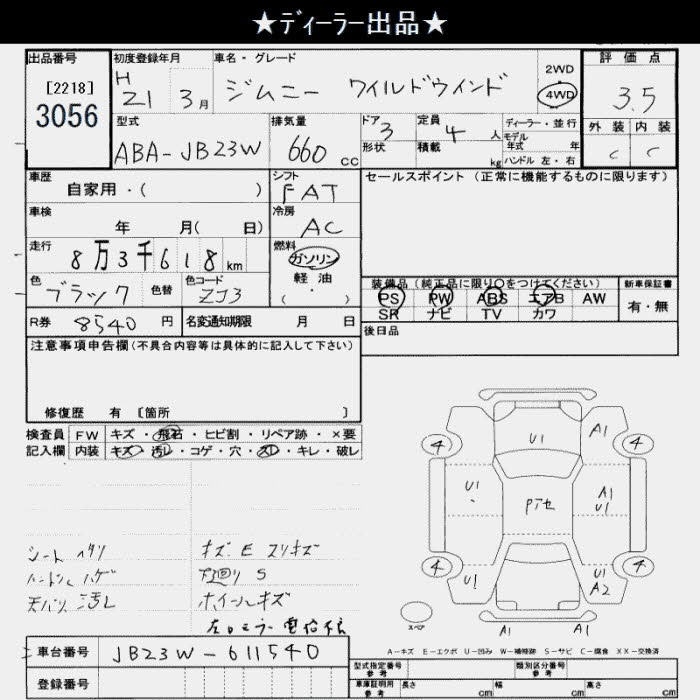 ★ディーラー出品★
出品番号 初度登録年月 車名・グレード 評価点
[2218] H 21 3月 ジムニー ワイルドウインド 2WD 4WD 3.5
3056
型式 排気量 ドア 3 定員 4人 ディーラー・並行 外装 内装
ABA-JB23W 660cc 形状 積載 kg モデル年式 年 C C
ハンドル 左・右
車歴 シフト セールスポイント (正常に機能するものに限ります)
自家用・( ) FAT
車検 冷房
年 月( 日) AC
走行 燃料
8万3千618km ガソリン
色 色替 色コード 軽油 装備品 (純正品に限り○をつけてください) 新車保証書
ブラック ZJ3 ( ・ ) PS PW ABS エアB AW 有・無
SR ナビ TV カワ
R券 8540円 名変通知期限 月 日 後日品
注意事項申告欄 (不具合内容等は具体的に記入して下さい)
修復歴 有 [箇所 ]
検査員 FW キズ・飛石・ヒビ割・リペア跡・×要
記入欄 内装 キズ・汚レ・コゲ・穴・スレ・キレ・破レ
4 U1 A1 4
U1 PTセ A1
U1
4 U1 U1 A2 4
スペア A1 A1
シート ヘタリ キズ E スリキズ
ハンドル ハゲ 下回り S
天バリ 汚レ ホイールキズ
A-キズ E-エクボ U-凹み W-補修跡 S-サビ C-腐食 XX-交換済
車台番号 JB23W-611540
登録番号
型式指定番号 参考 類別区分番号 参考
車庫証明用 参考 長さ cm 幅 cm 高さ cm